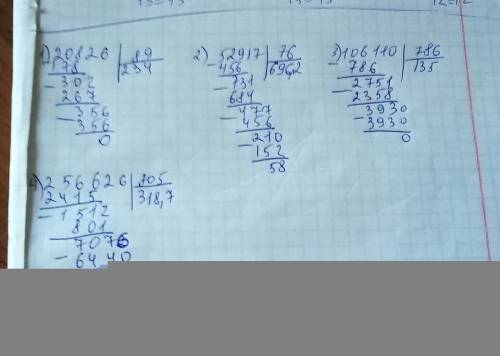 1) 20826 | 89
178 | 234
- 302
267
- 356
356
0
2) 52917 | 76
- 456 | 696,2
- 731
684
- 477
456
- 210
- 152
58
3) 106110 | 786
- 786 | 135
2751
- 2358
3930
- 3930
0
4) 256626 | 805
2415 | 318,7
- 1512
801
7076
- 6440